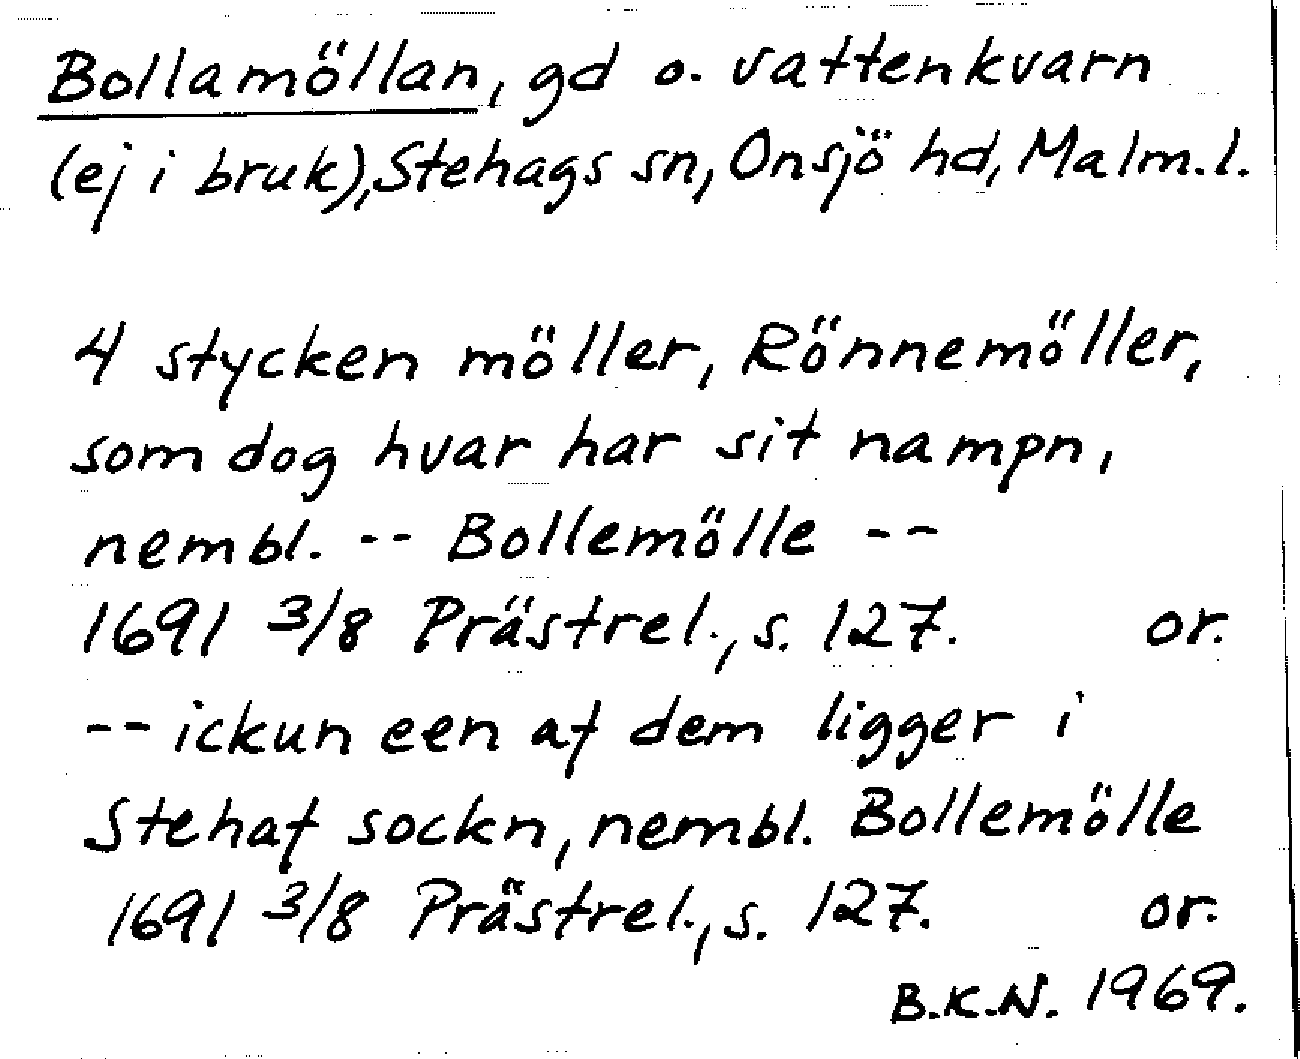 Bollamöllan, gd o. vattenkvarn
(ej i bruk), Stehags sn, Onsjö hd, Malm.l.
4 stycken möller, Rönnemöller,
som dog hvar har sit nampn,
nembl. -- Bollemölle --
1691 3/8 Prästrel., s. 127. or.
-- ickun een af dem ligger i
Stehaf sockn, nembl. Bollemölle
1691 3/8 Prästrel., s. 127. or.
B.K.N. 1969.